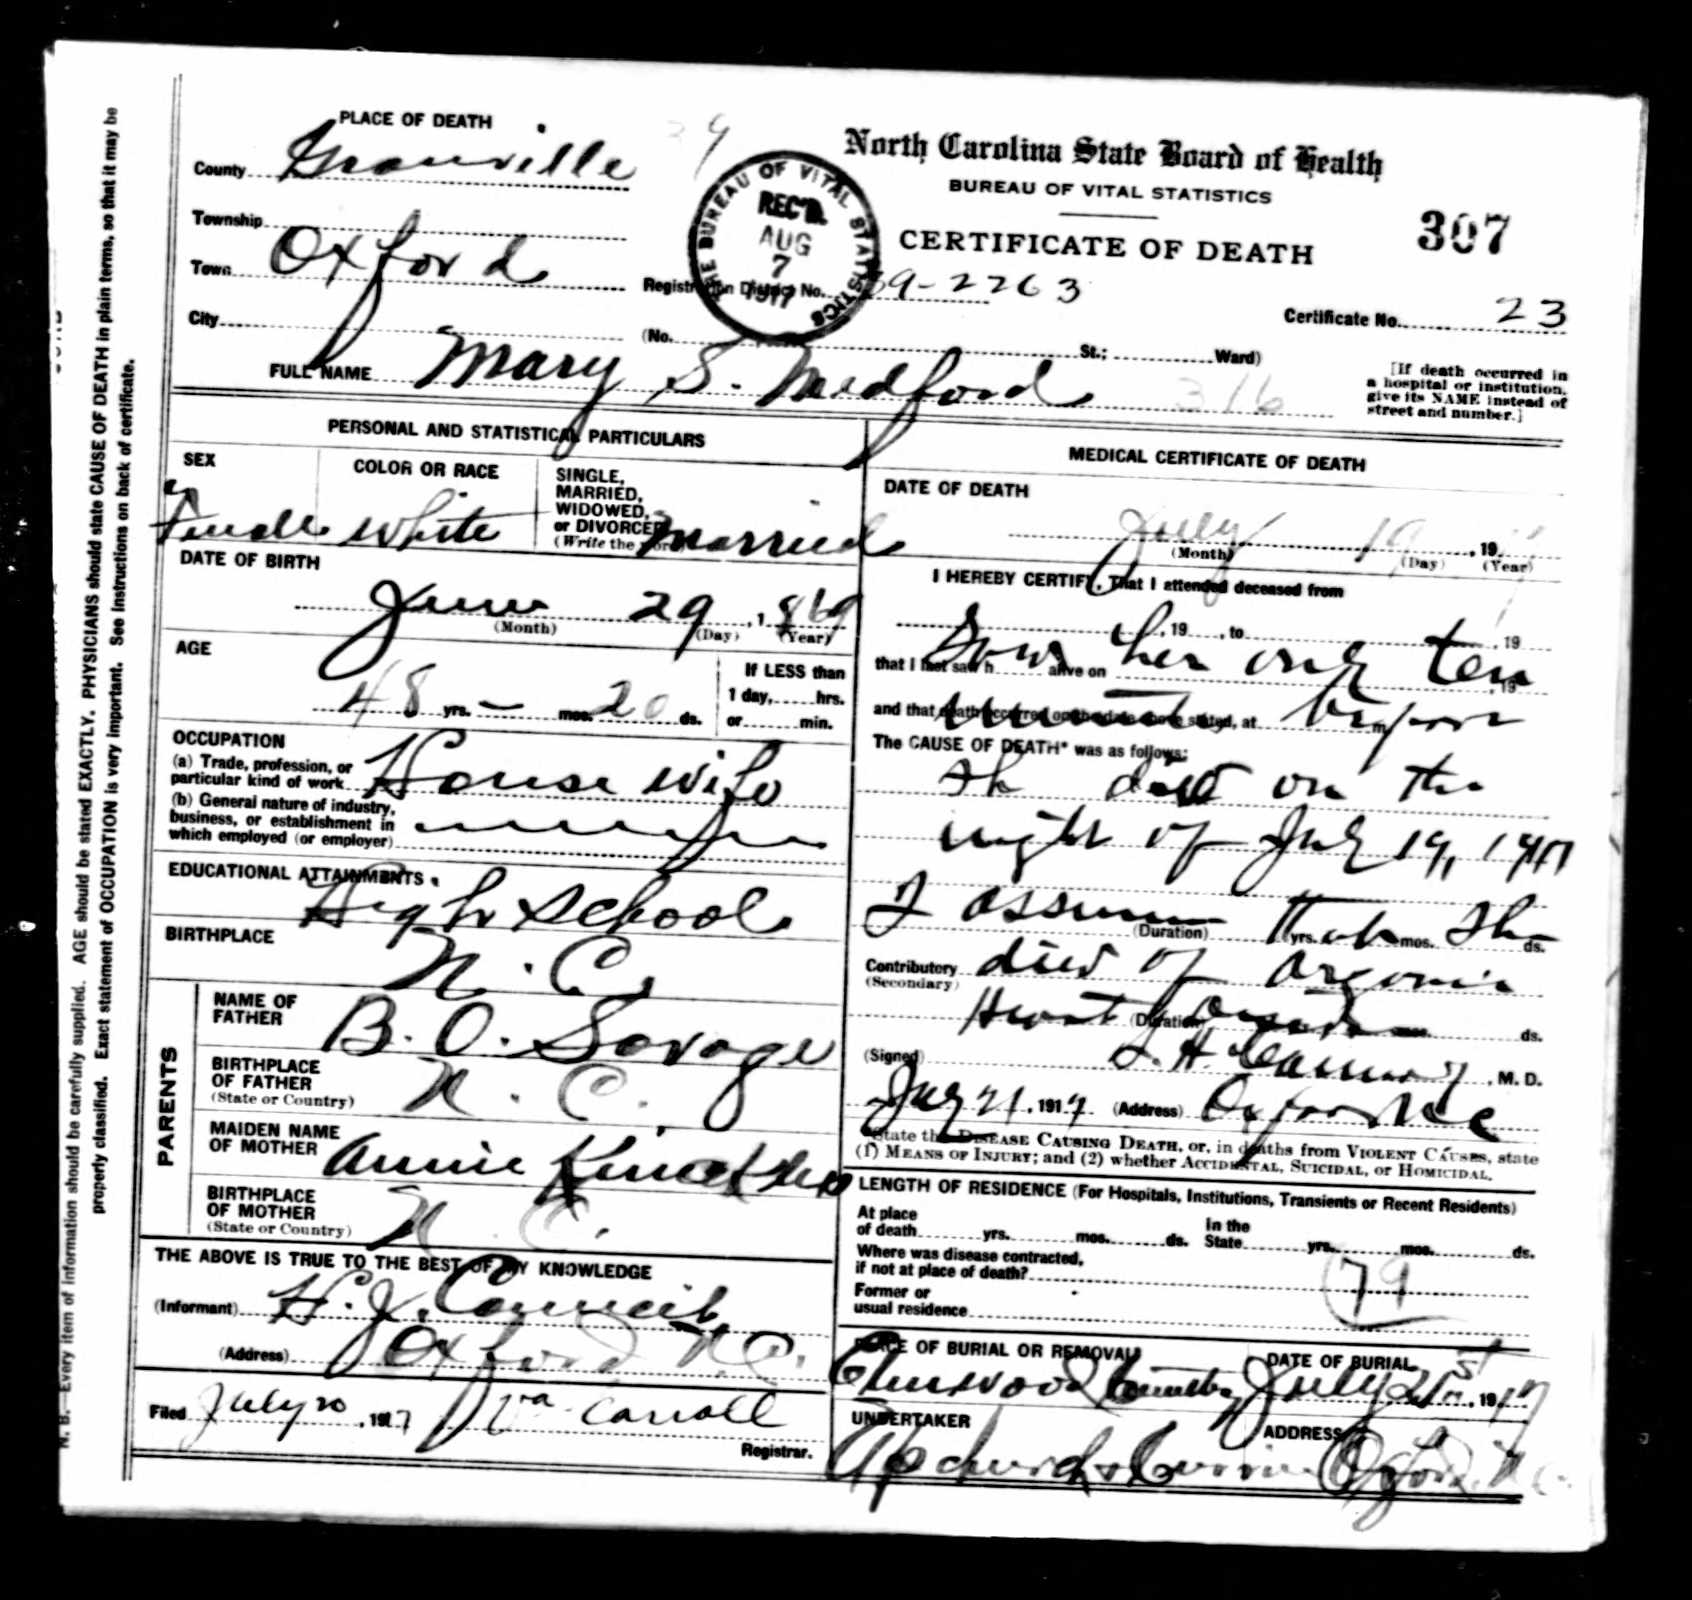 PLACE OF DEATH
County Granville
Township
Town Oxford
City
(No. St.; Ward)
FULL NAME Mary S. Medford 316
THE BUREAU OF VITAL STATISTICS
REC'D.
AUG
7
1917
North Carolina State Board of Health
BUREAU OF VITAL STATISTICS
CERTIFICATE OF DEATH
307
Registration District No. 39-2263
Certificate No. 23
[If death occurred in
a hospital or institution,
give its NAME instead of
street and number.]
PERSONAL AND STATISTICAL PARTICULARS
SEX
Female
COLOR OR RACE
White
SINGLE,
MARRIED,
WIDOWED,
or DIVORCED
(Write the word)
Married
DATE OF BIRTH
June 29, 1869
(Month) (Day) (Year)
AGE
48 yrs. — mos. 20 ds.
If LESS than
1 day, hrs.
or min.
OCCUPATION
(a) Trade, profession, or
particular kind of work House wife
(b) General nature of industry,
business, or establishment in
which employed (or employer)
EDUCATIONAL ATTAINMENTS
High School
BIRTHPLACE
N. C.
PARENTS
NAME OF
FATHER
B. O. Savage
BIRTHPLACE
OF FATHER
(State or Country)
N. C.
MAIDEN NAME
OF MOTHER
Annie
BIRTHPLACE
OF MOTHER
(State or Country)
N. C.
THE ABOVE IS TRUE TO THE BEST OF MY KNOWLEDGE
(Informant) H. J. Council
(Address) Oxford N.C.
Filed July 20, 1917 Carroll
Registrar.
MEDICAL CERTIFICATE OF DEATH
DATE OF DEATH
July 19, 1917
(Month) (Day) (Year)
I HEREBY CERTIFY, That I attended deceased from
, 19 , to , 19
that I last saw h alive on , 19
Saw her only ten
and that death occurred on the date above stated, at m.
minutes before
The CAUSE OF DEATH* was as follows:
She died on the
night of July 19, 1917
I assume that she
(Duration) yrs. mos. ds.
Contributory died of organic
(Secondary)
Heart disease
(Duration) mos. ds.
(Signed) , M. D.
July 21, 1917. (Address) Oxford N C
*State the DISEASE CAUSING DEATH, or, in deaths from VIOLENT CAUSES, state
(1) MEANS OF INJURY; and (2) whether ACCIDENTAL, SUICIDAL, or HOMICIDAL.
LENGTH OF RESIDENCE (For Hospitals, Institutions, Transients or Recent Residents)
At place
of death yrs. mos. ds.
In the
State yrs. mos. ds.
Where was disease contracted,
if not at place of death?
Former or
usual residence
79
PLACE OF BURIAL OR REMOVAL
Elmwood Cemetery
DATE OF BURIAL
July 21st, 1917
UNDERTAKER
Upchurch & Currin
ADDRESS
Oxford, N.C.
N. B.—Every item of information should be carefully supplied. AGE should be stated EXACTLY. PHYSICIANS should state CAUSE OF DEATH in plain terms, so that it may be
properly classified. Exact statement of OCCUPATION is very important. See instructions on back of certificate.